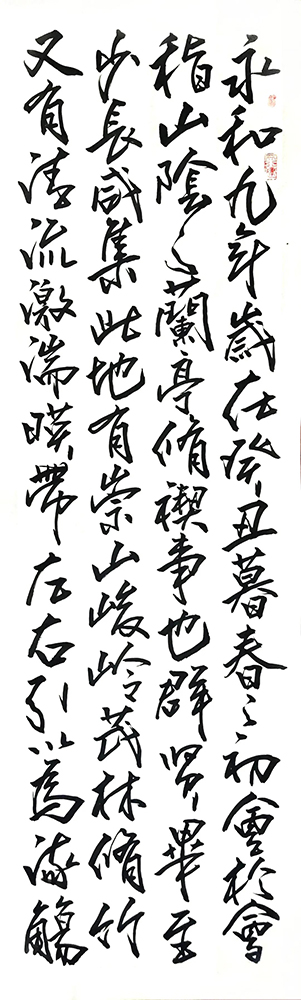 永和九年歲在癸丑暮春之初會於會
稽山陰之蘭亭脩禊事也群賢畢至
少長咸集此地有崇山峻嶺茂林脩竹
又有清流激湍暎帶左右引以為流觴